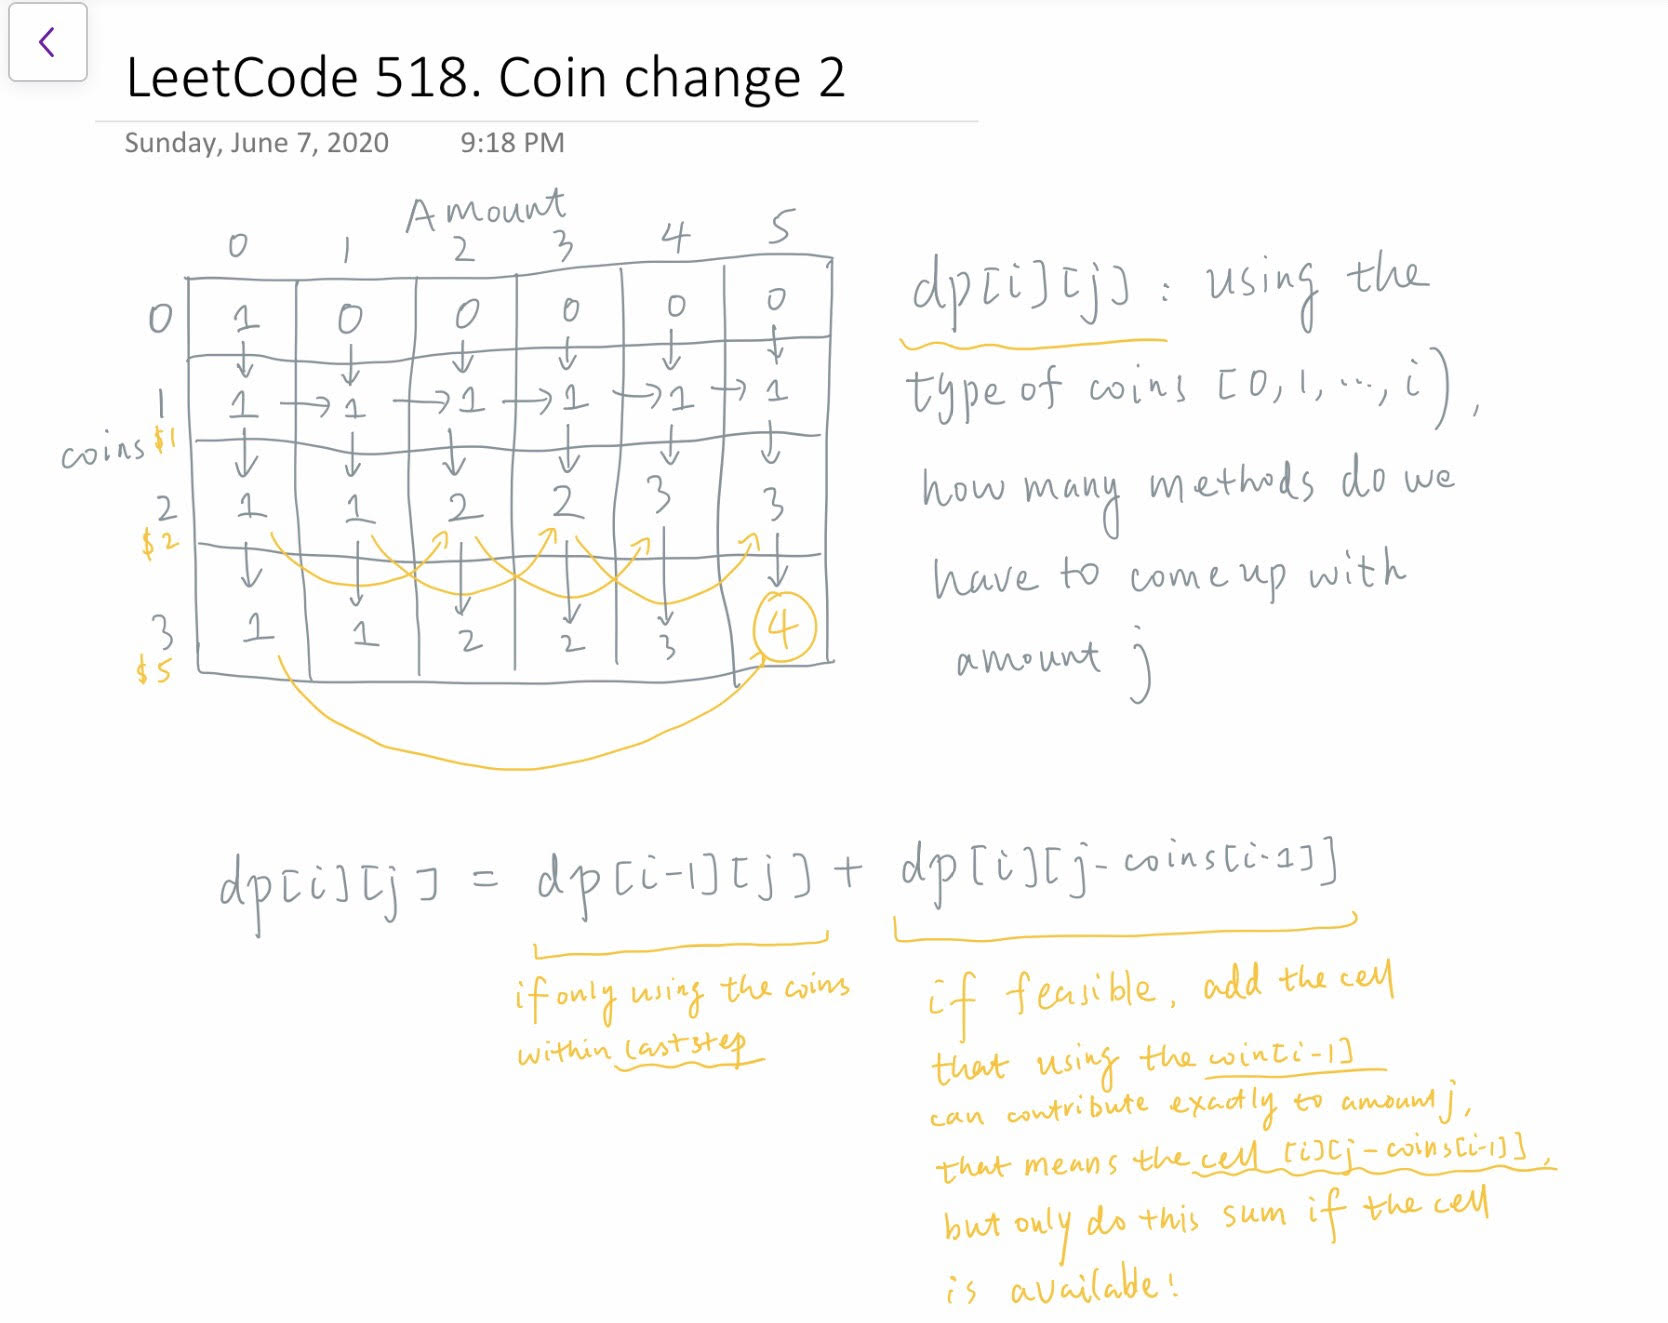 LeetCode 518. Coin change 2
Sunday, June 7, 2020 9:18 PM
Amount
0 1 2 3 4 5
0 1 0 0 0 0 0
1 1 → 1 → 1 → 1 → 1 → 1
coins $1
2 1 1 2 2 3 3
$2
3 1 1 2 2 3 4
$5
dp[i][j] : using the
type of coins [0, 1, ..., i),
how many methods do we
have to come up with
amount j
dp[i][j] = dp[i-1][j] + dp[i][j-coins[i-1]]
if only using the coins
within last step
if feasible, add the cell
that using the coin[i-1]
can contribute exactly to amount j,
that means the cell [i][j-coins[i-1]],
but only do this sum if the cell
is available!